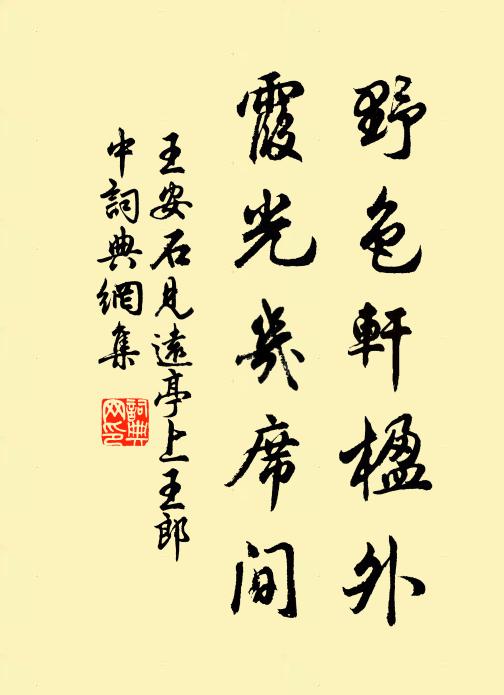 野色軒楹外
霞光几席間
王安石見遠亭上王郎
中詞典網集
詞典
网印